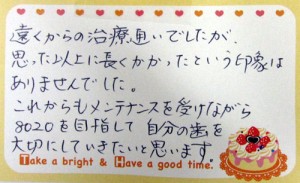 遠くからの治療通いでしたが、
思った以上に長くかかったという印象は
ありませんでした。
これからもメンテナンスを受けながら
8020を目指して自分の歯を
大切にしていきたいと思います。
Take a bright & Have a good time.